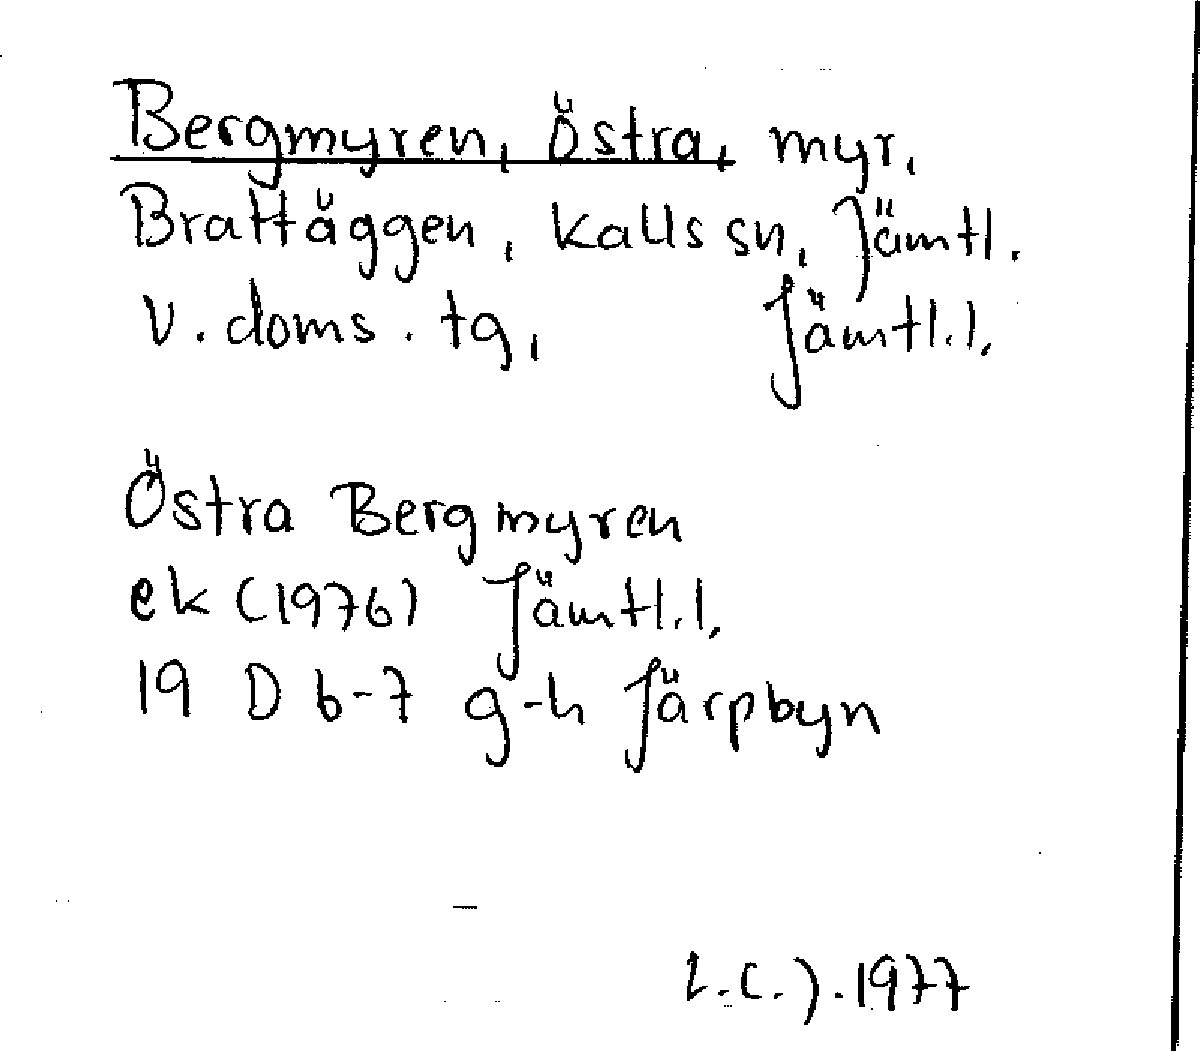 Bergmyren, Östra, myr.
Brattäggen, Kalls sn, Jämtl.
v. doms. tg, Jämtl.l.
Östra Bergmyren
ek (1976) Jämtl.l.
19 D 6-7 g-h Järpbyn
L.C.J. 1977